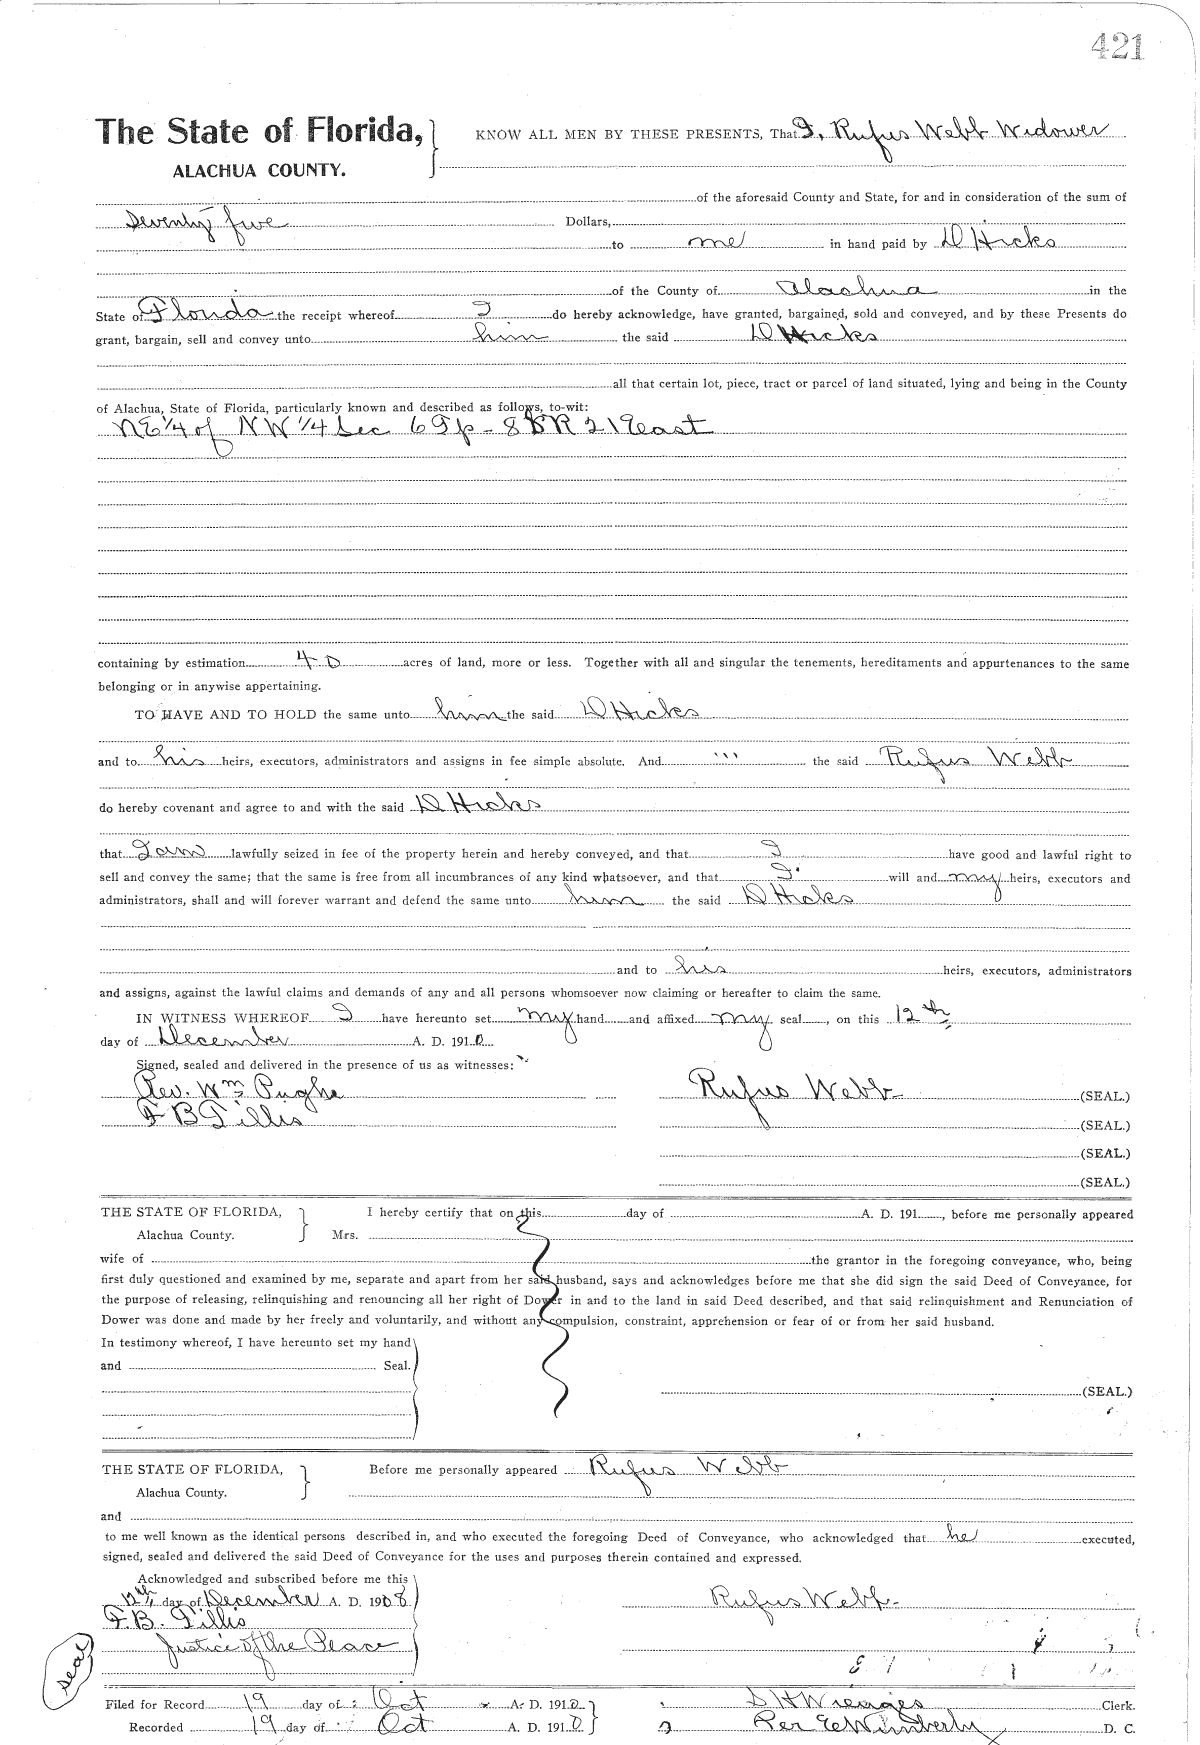 421
The State of Florida, KNOW ALL MEN BY THESE PRESENTS, That I, Rufus Webb Widower
ALACHUA COUNTY.
of the aforesaid County and State, for and in consideration of the sum of
Seventy five Dollars,
to me in hand paid by D Hicks
of the County of Alachua in the
State of Florida the receipt whereof I do hereby acknowledge, have granted, bargained, sold and conveyed, and by these Presents do
grant, bargain, sell and convey unto him the said D Hicks
all that certain lot, piece, tract or parcel of land situated, lying and being in the County
of Alachua, State of Florida, particularly known and described as follows, to-wit:
NE 1/4 of NW 1/4 Sec 6 Tp - 8 S R 21 East
containing by estimation 40 acres of land, more or less. Together with all and singular the tenements, hereditaments and appurtenances to the same
belonging or in anywise appertaining.
TO HAVE AND TO HOLD the same unto him the said D Hicks
and to his heirs, executors, administrators and assigns in fee simple absolute. And ''' the said Rufus Webb
do hereby covenant and agree to and with the said D Hicks
that I am lawfully seized in fee of the property herein and hereby conveyed, and that I have good and lawful right to
sell and convey the same; that the same is free from all incumbrances of any kind whatsoever, and that I will and my heirs, executors and
administrators, shall and will forever warrant and defend the same unto him the said D Hicks
and to his heirs, executors, administrators
and assigns, against the lawful claims and demands of any and all persons whomsoever now claiming or hereafter to claim the same.
IN WITNESS WHEREOF I have hereunto set my hand and affixed my seal, on this 12th
day of December A. D. 1910
Signed, sealed and delivered in the presence of us as witnesses:
Rev. Wm Pughe Rufus Webb (SEAL.)
F B Tillis (SEAL.)
(SEAL.)
(SEAL.)
THE STATE OF FLORIDA, I hereby certify that on this day of A. D. 191 , before me personally appeared
Alachua County. Mrs.
wife of the grantor in the foregoing conveyance, who, being
first duly questioned and examined by me, separate and apart from her said husband, says and acknowledges before me that she did sign the said Deed of Conveyance, for
the purpose of releasing, relinquishing and renouncing all her right of Dower in and to the land in said Deed described, and that said relinquishment and Renunciation of
Dower was done and made by her freely and voluntarily, and without any compulsion, constraint, apprehension or fear of or from her said husband.
In testimony whereof, I have hereunto set my hand
and Seal.
(SEAL.)
THE STATE OF FLORIDA, Before me personally appeared Rufus Webb
Alachua County.
and
to me well known as the identical persons described in, and who executed the foregoing Deed of Conveyance, who acknowledged that he executed,
signed, sealed and delivered the said Deed of Conveyance for the uses and purposes therein contained and expressed.
Acknowledged and subscribed before me this
12th day of December A. D. 1908 Rufus Webb
F. B. Tillis
Justice of the Peace
seal
Filed for Record 19 day of Oct A. D. 1910 Clerk.
Recorded 19 day of Oct A. D. 1910 Per E Wimberly D. C.